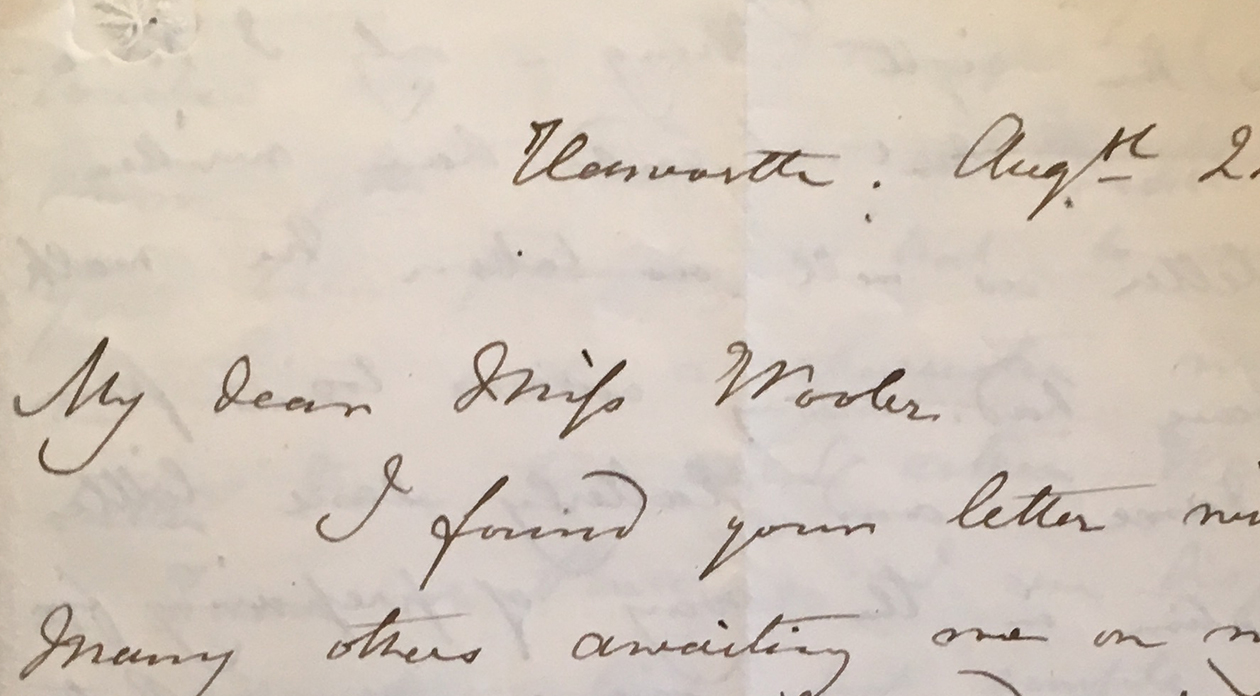 Haworth. Augst 2
My dear Miss Wooler
I found your letter
Many others awaiting me on